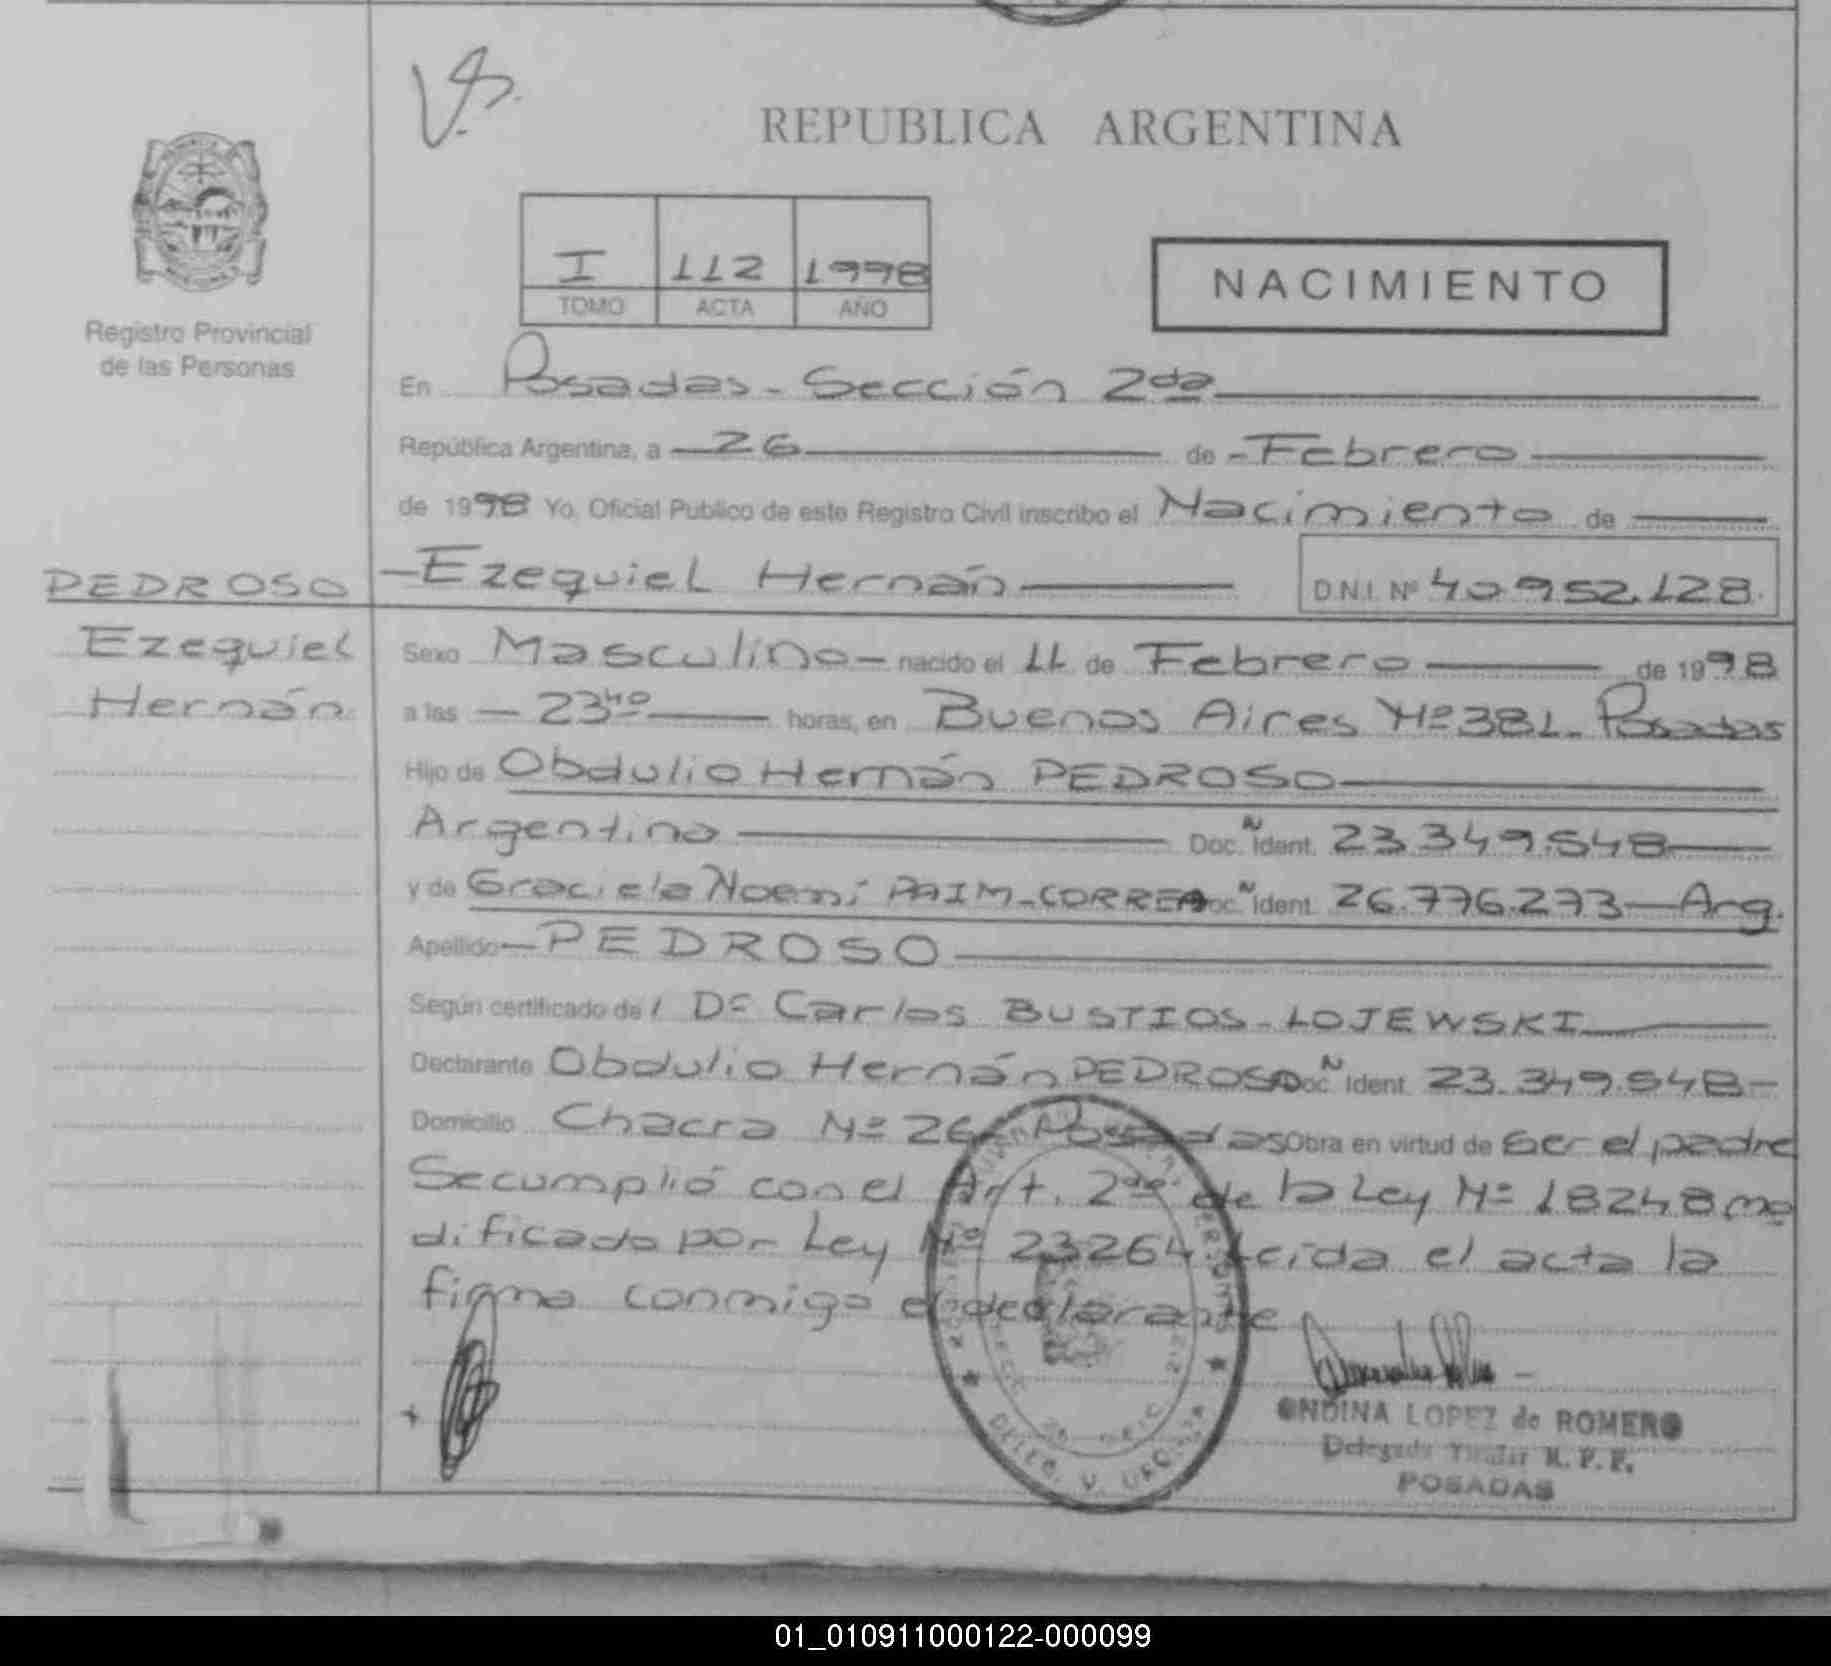 V.S.
REPUBLICA ARGENTINA
I 112 1998
TOMO ACTA AÑO
NACIMIENTO
Registro Provincial
de las Personas
En Posadas - Sección 2da
República Argentina, a 26 de Febrero
de 1998 Yo, Oficial Publico de este Registro Civil inscribo el Nacimiento de
PEDROSO
Ezequiel
Hernán
Ezequiel Hernán D.N.I. Nº 40.952.128
Sexo Masculino nacido el 11 de Febrero de 1998
a las 23 40 horas, en Buenos Aires Nº 381 - Posadas
Hijo de Obdulio Hernán PEDROSO
Argentino Doc. N Ident. 23.349.548
y de Graciela Noemí PAIM-CORREA Doc. N Ident. 26.776.273 - Arg.
Apellido PEDROSO
Según certificado del Dr Carlos BUSTIOS-LOJEWSKI
Declarante Obdulio Hernán PEDROSO Doc. N Ident. 23.349.548
Domicilio Chacra Nº 26 - Posadas Obra en virtud de Ser el padre
Secumplió con el Art. 2do de la Ley Nº 18248 mo
dificado por Ley Nº 23264 Leida el acta la
firma conmigo el declarante
ONDINA LOPEZ de ROMERO
Delegada Titular R. P. P.
POSADAS
01_010911000122-000099